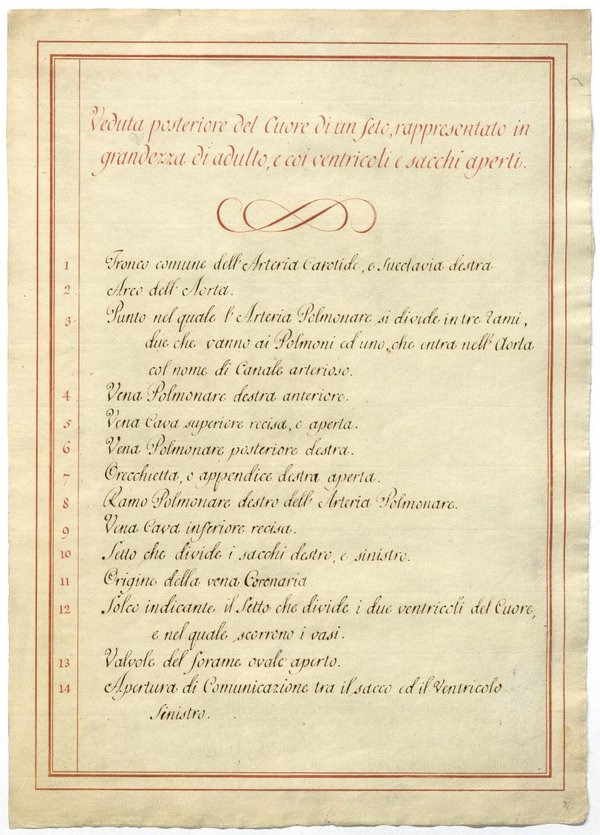 Veduta posteriore del Cuore di un feto, rappresentato in
grandezza di adulto, e coi ventricoli e sacchi aperti.
1 Tronco comune dell'Arteria Carotide, e Succlavia destra
2 Arco dell'Aorta.
3 Punto nel quale l'Arteria Polmonare si divide in tre rami,
due che vanno ai Polmoni ed uno che entra nell'Aorta
col nome di Canale arterioso.
4 Vena Polmonare destra anteriore.
5 Vena Cava superiore recisa, e aperta.
6 Vena Polmonare posteriore destra.
7 Orecchietta, o appendice destra aperta.
8 Ramo Polmonare destro dell'Arteria Polmonare.
9 Vena Cava inferiore recisa.
10 Setto che divide i sacchi destro, e sinistro.
11 Origine della vena Coronaria
12 Solco indicante il Setto che divide i due ventricoli del Cuore,
e nel quale scorrono i vasi.
13 Valvole del forame ovale aperto.
14 Apertura di Comunicazione tra il sacco ed il Ventricolo
Sinistro.